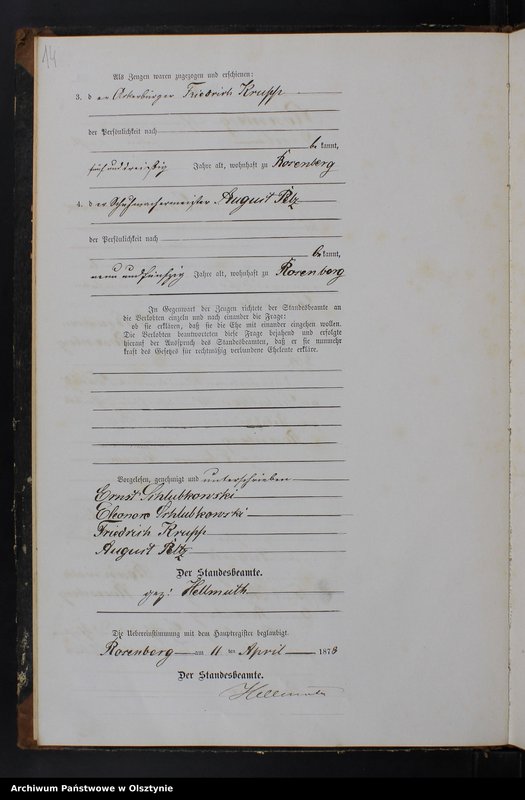 14
Als Zeugen waren zugezogen und erschienen:
3. d er Ackerbürger Friedrich Krupp
der Persönlichkeit nach
be kannt,
fünfunddreißig Jahre alt, wohnhaft zu Rosenberg
4. d er Schuhmachermeister August
der Persönlichkeit nach
be kannt,
neun und fünfzig Jahre alt, wohnhaft zu Rosenberg
In Gegenwart der Zeugen richtete der Standesbeamte an
die Verlobten einzeln und nach einander die Frage:
ob sie erklären, daß sie die Ehe mit einander eingehen wollen.
Die Verlobten beantworteten diese Frage bejahend und erfolgte
hierauf der Ausspruch des Standesbeamten, daß er sie nunmehr
kraft des Gesetzes für rechtmäßig verbundene Eheleute erkläre.
Vorgelesen, genehmigt und unterschrieben
Ernst Schlubkowski
Eleonore Schlubkowski
Friedrich Krupp
August
Der Standesbeamte.
gez: Hellmuth
Die Uebereinstimmung mit dem Hauptregister beglaubigt.
Rosenberg am 11 ten April 1878
Der Standesbeamte.
Hellmuth
Archiwum Państwowe w Olsztynie